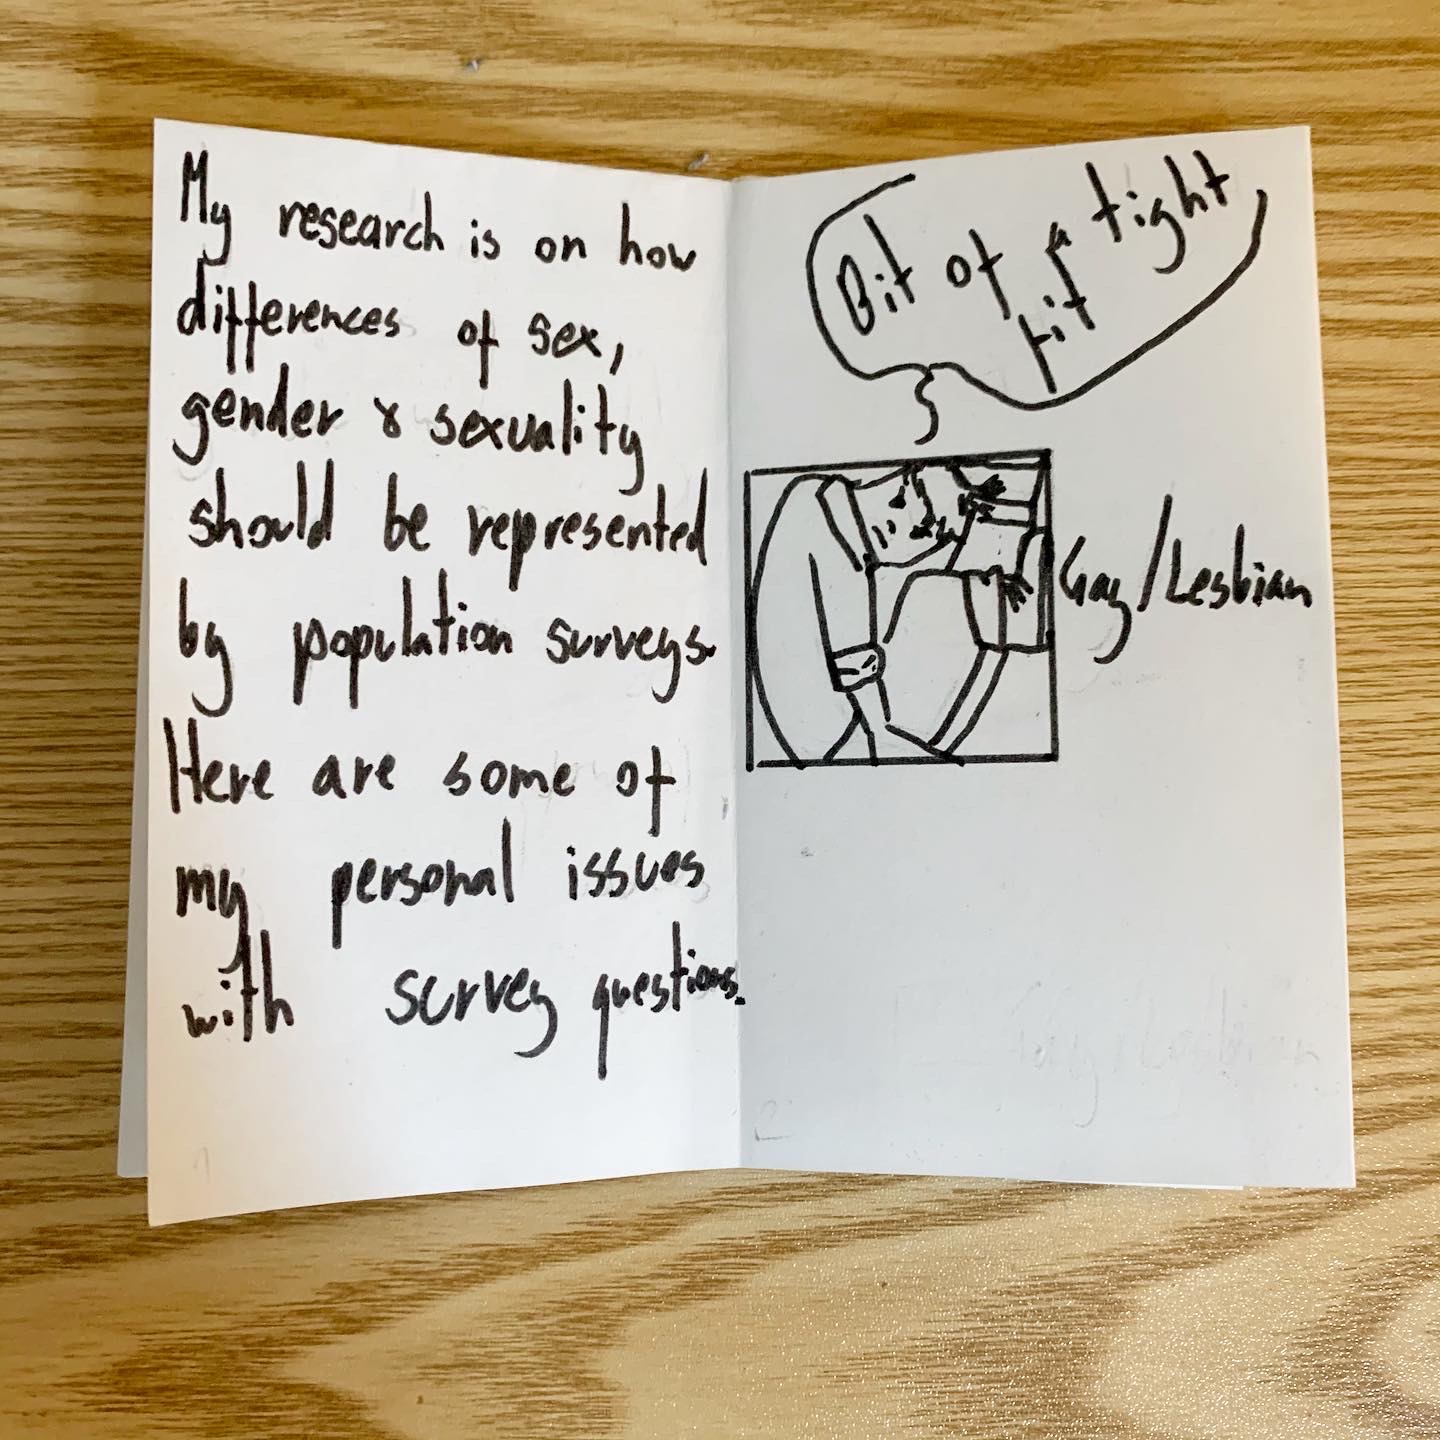 My research is on how
differences of sex,
gender & sexuality
should be represented
by population surveys.
Here are some of
my personal issues
with survey questions.
1
Bit of a tight
fit
Gay/Lesbian
Gay/Lesbian
2